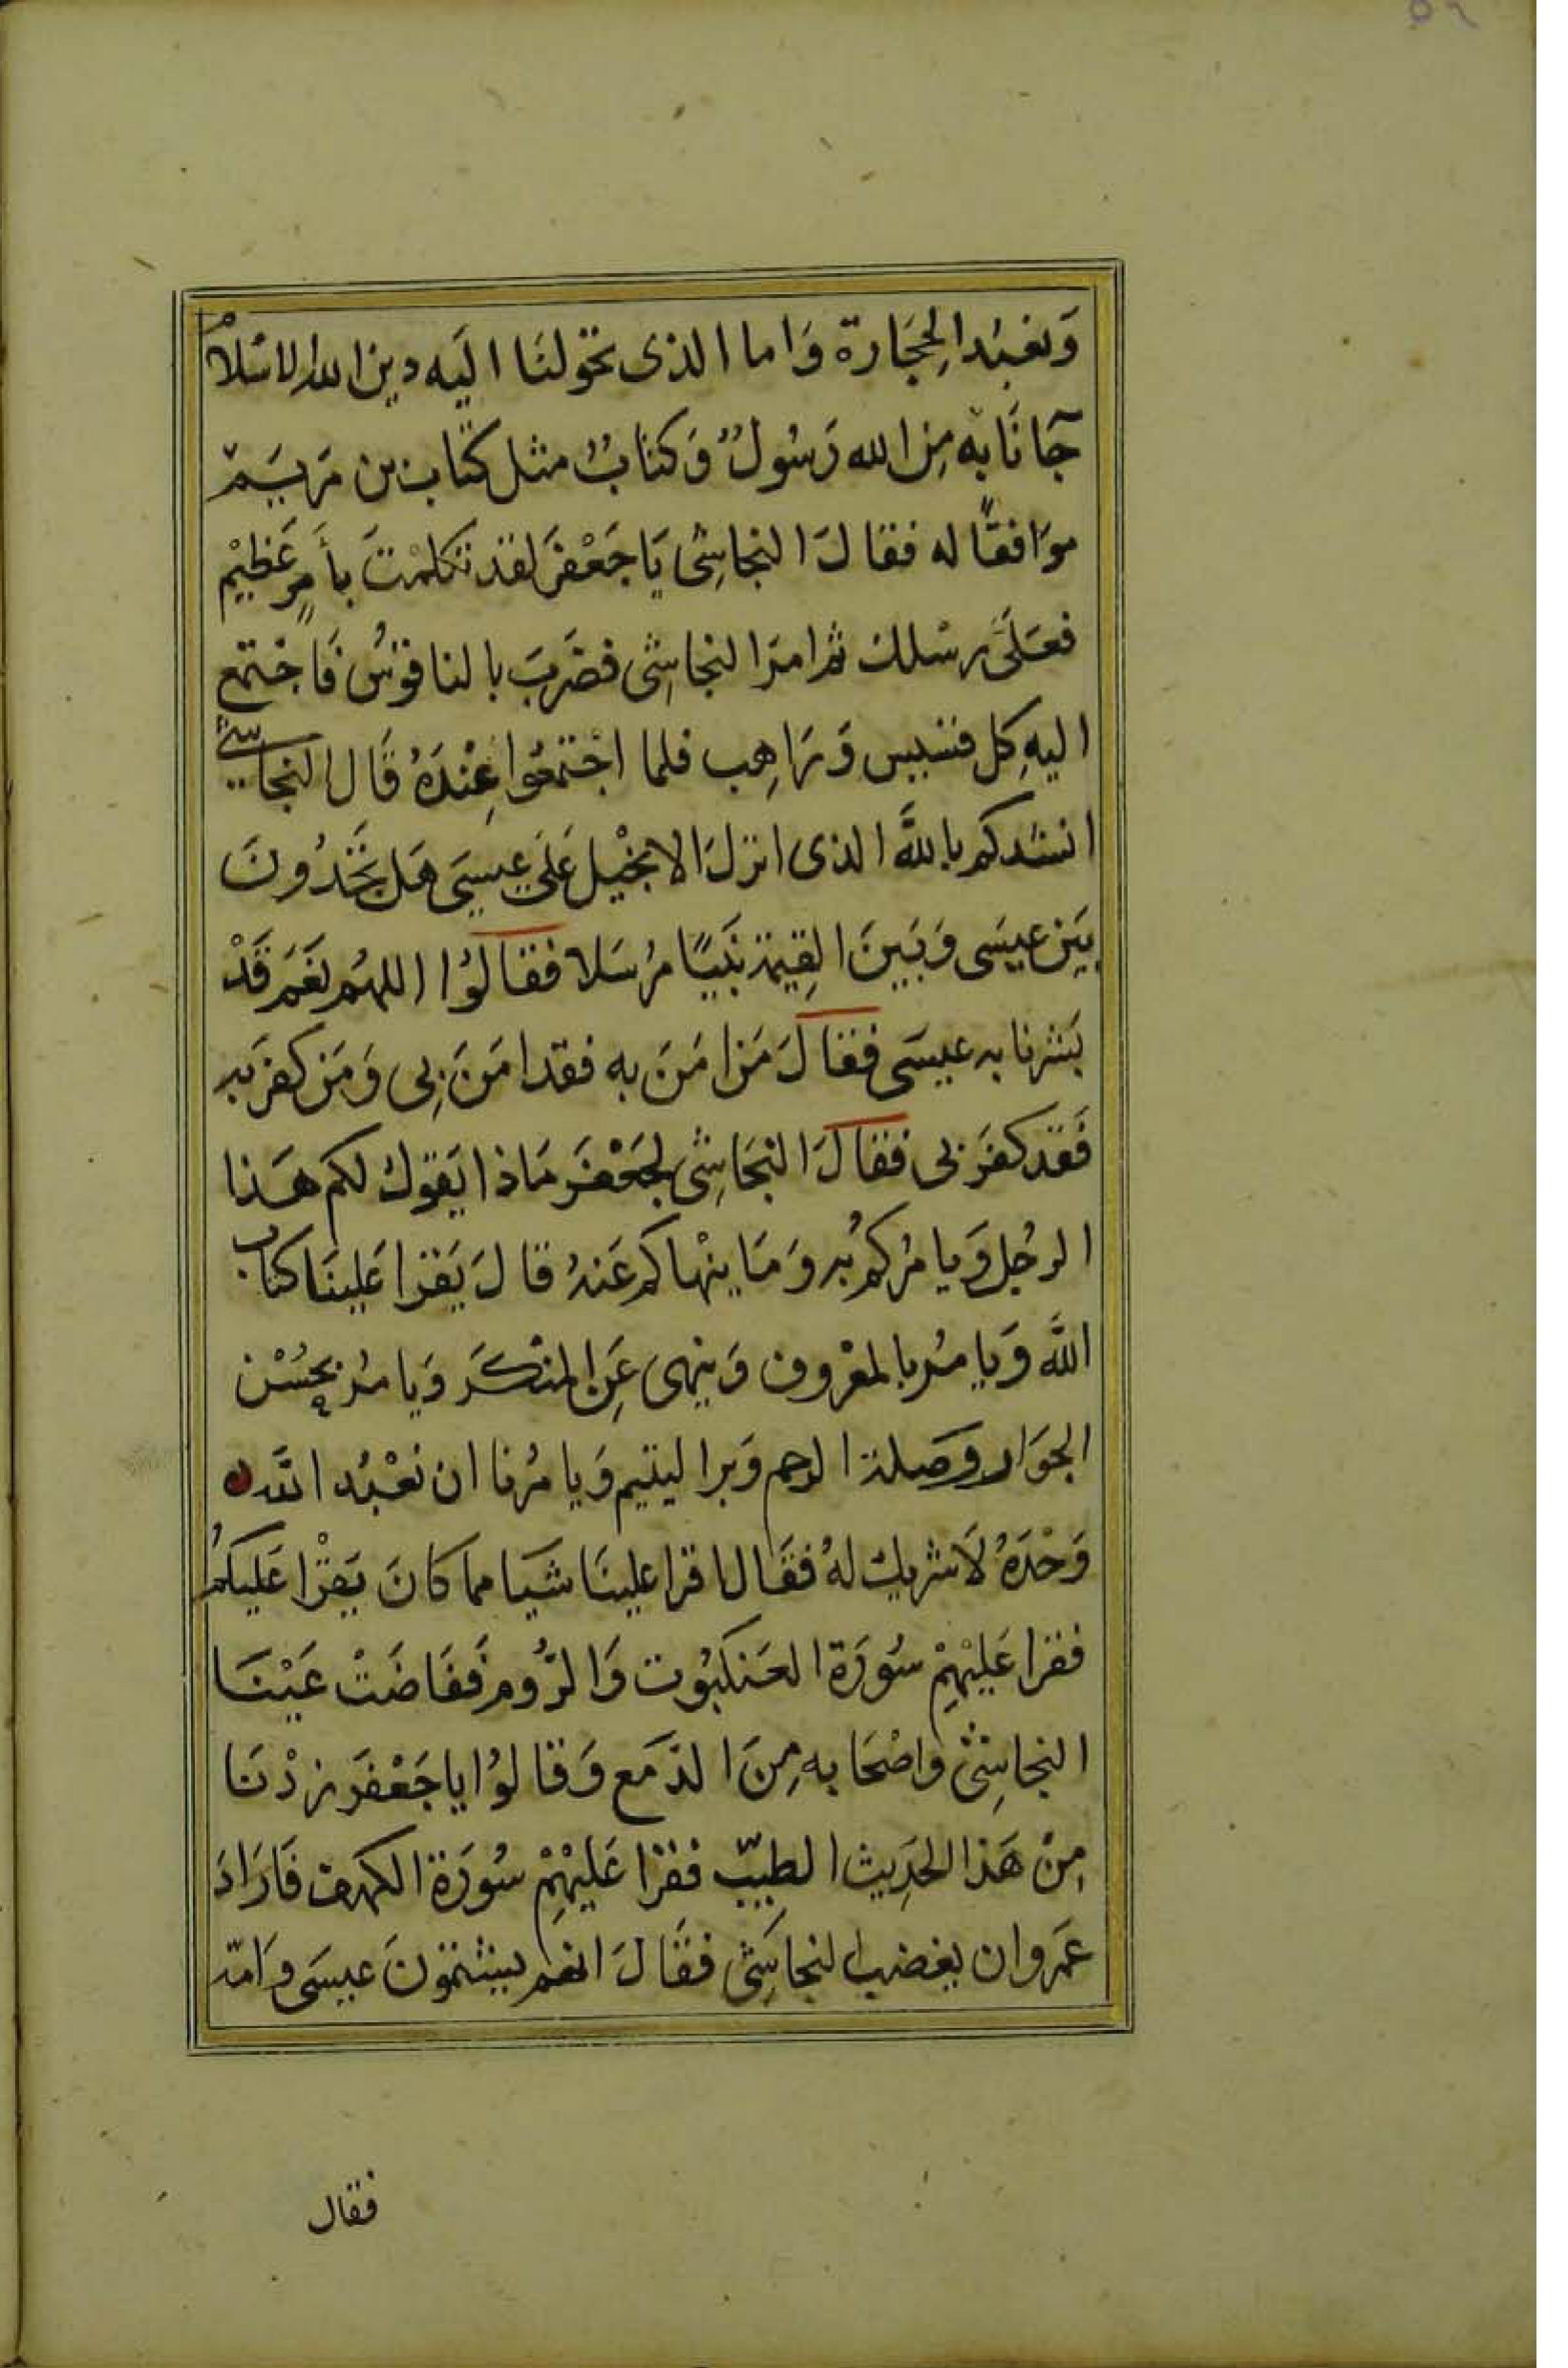 ٥٩
وَنعبُد الحِجَارة وَاما الذى تحولنَا اليَه دين الله الاسْلامْ
جَانَا به مِن الله رَسُولٌ وَكتابٌ مثل كتاب بن مَريَم
موَافقًا له فقالَ النجاشِى يَا جَعْفَر لقد تكلمْتَ بأمرٍ عَظِيْم
فعَلَى رسْلك ثم امَر النجاشِى فضَربَ بالناقوسُ فَاجْتمع
اليهِ كل قسيس وَرَاهِب فلما اجْتمعُوا عِنْدَهُ قَال النجاشي
انشدكم باللَّه الذى انزلَ الانجيْل عَلَى عِيسَى هَل تجَدُونَ
بَين عيسَى وَبَينَ القِيمة نَبيًا مرُسَلا فقالوُا اللهُم نعَم قَدْ
بَشرنا به عيسَى فقالَ مَن امَنَ به فقد امَنَ بِى وَمَن كفَر به
فَقد كفَر بى فقالَ النجَاشِى لجَعْفَر مَاذا يَقول لكم هَذا
الرجُل وَيامرُكم بُه وَمَا ينْهاكم عَنهُ قالَ يَقرا عَلينَا كتاب
اللَّه وَيامُر بالمعْروف وَينهى عَنِ المنكَر وَيامرُ بحُسْن
الجوَار وَصَلة الرحم وَبر اليتيم وَيامرُنا ان نعْبُد اللَّه
وَحْدَهُ لاَ شريك لهُ فقَال اقرا علينَا شَيا مما كانَ يَقْرا عَليكمُ
فقرا عَليْهِمْ سُورَة العَنكبُوت وَالرُّوم فَفَاضَتْ عَيْنَا
النجاشِىْ وَاصْحَابه مِنَ الدَمع وَقالوُا يا جَعْفَر زِدْنَا
مِنْ هَذا الحَدِيث الطيِّب فقرا عَليْهِمْ سُورَة الكهف فَارَادَ
عَمرو ان يغضب النجاشِى فقَالَ انهم يشتمونَ عيسَى وَامّه
فقال